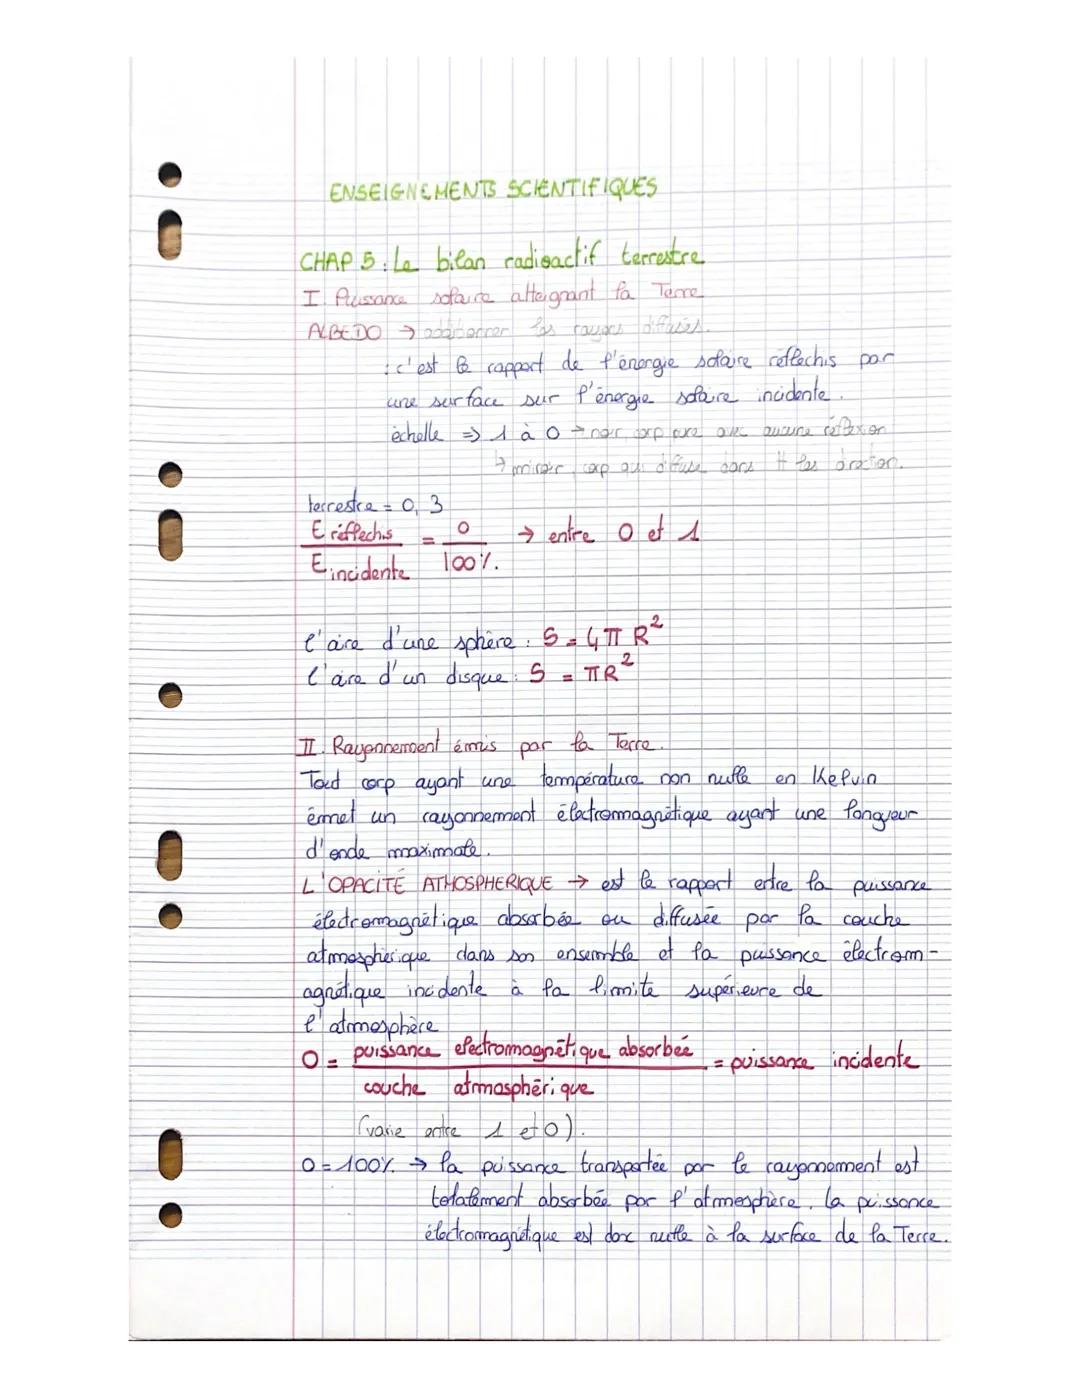 ENSEIGNEMENTS SCIENTIFIQUES
CHAP 5 : Le bilan radioactif terrestre
I. Puissance solaire atteignant la Terre
ALBEDO → les rayons diffusés.
: c'est le rapport de l'énergie solaire réflechis par
une surface sur l'énergie solaire incidente.
échelle => 1 à 0 → noir, corp pure avec aucune réflexion
↳ miroir, corp qui diffuse dans tt les direction.
terrestre = 0,3
E réflechis / E incidente = 0 / 100% → entre 0 et 1
l'aire d'une sphère : S = 4πR²
l'aire d'un disque : S = πR²
II. Rayonnement émis par la Terre.
Tout corp ayant une température non nulle en Kelvin
émet un rayonnement électromagnétique ayant une longueur
d'onde maximale.
L'OPACITÉ ATMOSPHERIQUE → est le rapport entre la puissance
électromagnétique absorbée ou diffusée par la couche
atmosphérique dans son ensemble et la puissance électrom-
agnétique incidente à la limite supérieure de
l'atmosphère
O = puissance electromagnétique absorbée / couche atmosphérique = puissance incidente
(varie entre 1 et 0).
O = 100% → la puissance transportée par le rayonnement est
totalement absorbée par l'atmosphère. La puissance
électromagnétique est donc nulle à la surface de la Terre.